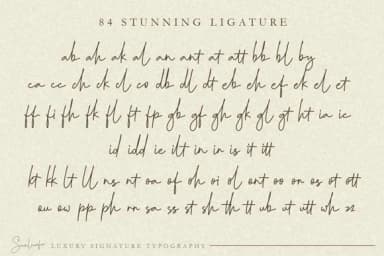 84 STUNNING LIGATURE
ab ah ak al an ant at att bb bl by
ca cc ch ck cl co db dl dt eb eh ef ek el et
ff fi fh fk fl ft fp gb gf gh gk gl gt ht ia ic
id idd ie ilt in in is it itt
kt kk lt ll ns nt oa of oh oi ol ont oo on os ot ott
ou ow pp ph rn sa ss st sh th tt ub ut utt wh zz
LUXURY SIGNATURE TYPOGRAPHY